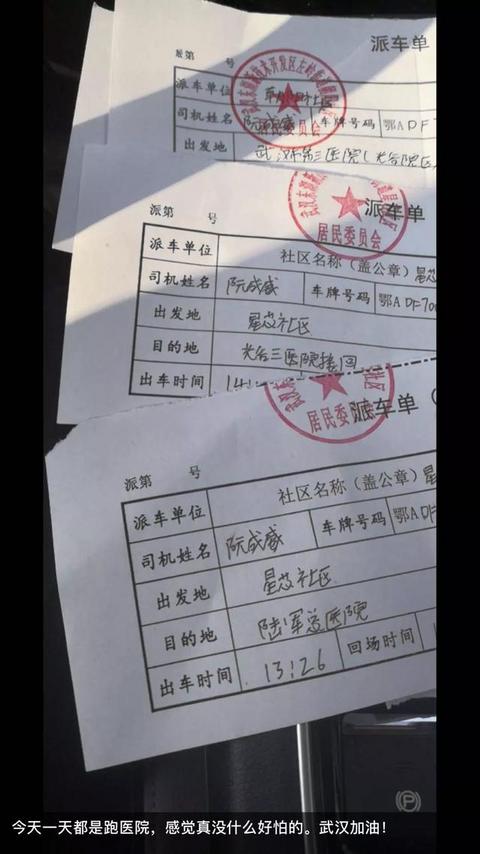 派车单
派第 号
派车单位
司机姓名 阮成盛 车牌号码 鄂A DF7
出发地 武汉市第三医院(光谷院区
派车单
居民委员会
派第 号
派车单位 社区名称(盖公章)星芯
司机姓名 阮成盛 车牌号码 鄂A DF70
出发地 星芯社区
目的地 光谷三医院接回
出车时间 14:
派车单(
居民委员会
派第 号
派车单位 社区名称(盖公章)星
司机姓名 阮成盛 车牌号码 鄂A DF
出发地 星芯社区
目的地 陆军总医院
出车时间 13:26 回场时间 1
P
今天一天都是跑医院,感觉真没什么好怕的。武汉加油!